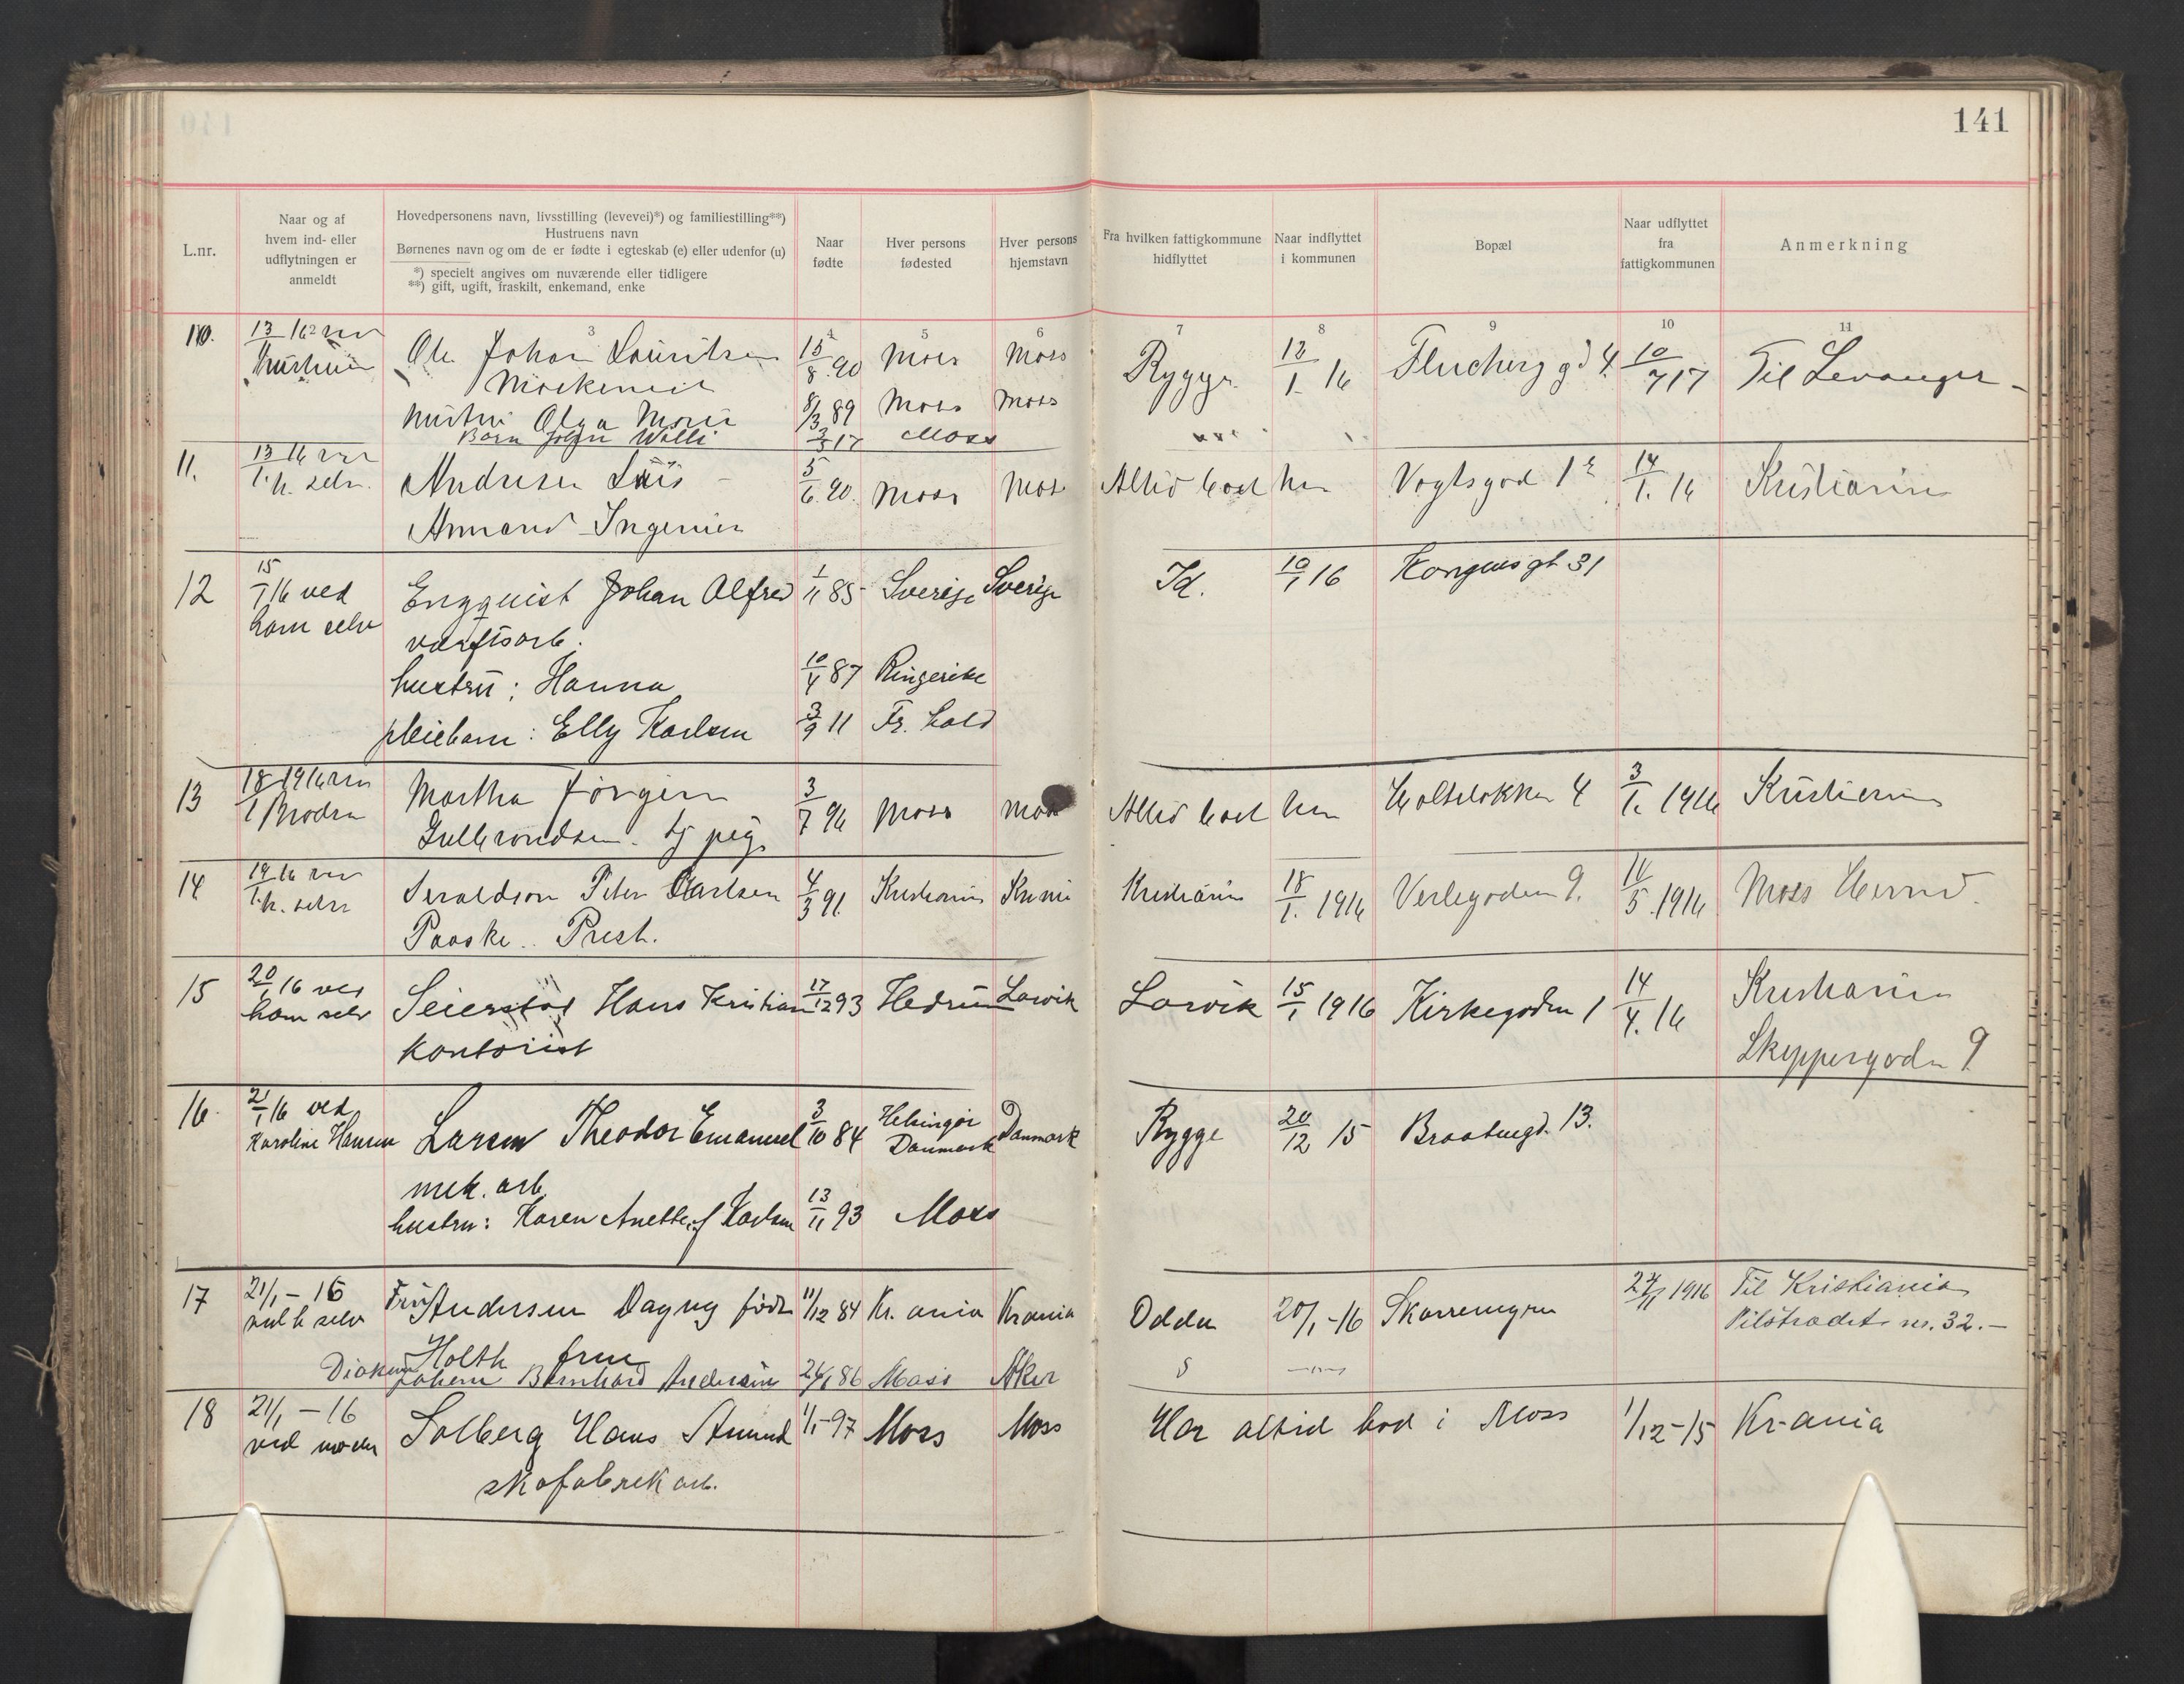 141
L.nr.
Naar og af
hvem ind- eller
udflytningen er
anmeldt
Hovedpersonens navn, livsstilling (levevei)*) og familiestilling**)
Hustruens navn
Børnenes navn og om de er fødte i egteskab (e) eller udenfor (u)
*) specielt angives om nuværende eller tidligere
**) gift, ugift, fraskilt, enkemand, enke
Naar
fødte
Hver persons
fødested
Hver persons
hjemstavn
Fra hvilken fattigkommune
hidflyttet
Naar indflyttet
i kommunen
Bopæl
Naar udflyttet
fra
fattigkommunen
Anmerkning
3 4 5 6 7 8 9 10 11
10. 13/1 16 Ole Johan Lauritsen 15/8 90 Moss Moss Rygge 12/1 16 gd 4. 10/7 17 Til Levanger
hustru Olga Marie 8/3 89 Moss Moss
Barn Willi 3/5 17 Moss
11. 13/1 16 h. selv. Andresen 5/6 90. Moss Moss Altid boet her Vogtsgad 14/1 16 Kristiania
Armand Ingeniør
12 15/1 16 ved Engquist Johan Alfred 1/11 85 Sverige Sverige Id. 10/1 16 Kongensgt 31
ham selv verftsarb.
hustru: Hanna 10/4 87 Ringerike
pleiebarn: Elly Karlsen 3/9 11 Fr. hald
13 18/1 1916 Broderen Martha Jørgine 3/7 96 Moss Moss Altid boet her Holteløkken 4 3/1. 1916 Kristiania
Gulbrandsen. tj pige
14 19/1 16 h. selv Peter Carlsen 4/3 91. Kristiania Kr.nia Kristiania 18/1. 1916 Verlegaden 9. 16/5. 1916 Moss Herred.
Paaske.. Prest.
15 20/1 16 ved Seierstad Hans Kristian 17/12 93 Hedrum Larvik Larvik 15/1 1916 Kirkegaden 1 14/4. 16 Kristiania
ham selv kontorist Skippergaden 9
16. 21/1 16 ved Larsen Theodor Emanuel 3/10 84 Helsingør Danmark Rygge 20/12 15 Braatengd. 13.
Karoline Hansen Danmark
mek. arb
hustru: Karen Anette f. Karlsen 13/11 93 Moss
17 21/1 - 16 Fru Andersen Dagny født 11/12 84 Kr.ania Krania Odda 20/1 -16 27/11 1916 Til Kristiania
ved h selv Holth frue Pilestrædet nr. 32. -
Diakon Johan Bernhard Andersen 26/1 86 Moss Aker
18 21/1 - 16 Solberg Hans Amund 1/1-97 Moss Moss Har altid bod i Moss 1/12-15 Kr-ania
ved moder skofabrik arb.